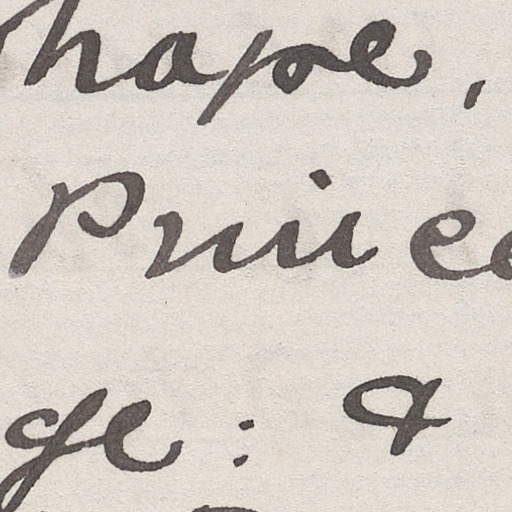 hape,
Price
ge: &